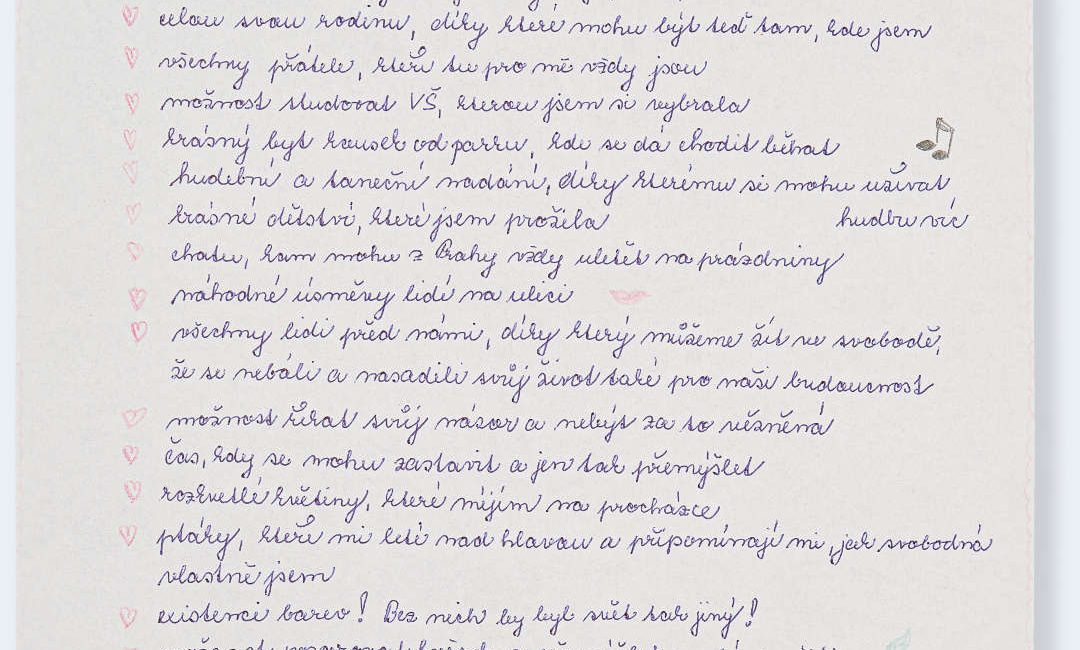 celou svou rodinu, díky které mohu být teď tam, kde jsem
všechny přátele, kteří tu pro mě vždy jsou
možnost studovat VŠ, kterou jsem si vybrala
krásný byt kousek od parku, kde se dá chodit běhat
hudební a taneční nadání, díky kterému si mohu užívat
krásné dětství, které jsem prožila hudbu víc
chatu, kam mohu z Prahy vždy uletět na prázdniny
náhodné úsměvy lidí na ulici
všechny lidi před námi, díky který můžeme žít ve svobodě,
že se nebáli a nasadili svůj život také pro naši budoucnost
možnost říkat svůj názor a nebýt za to vězněná
čas, kdy se mohu zastavit a jen tak přemýšlet
rozkvetlé květiny, které míjím na procházce
ptáky, kteří mi letí nad hlavou a připomínají mi, jak svobodná
vlastně jsem
existenci barev! Bez nich by byl svět tak jiný!